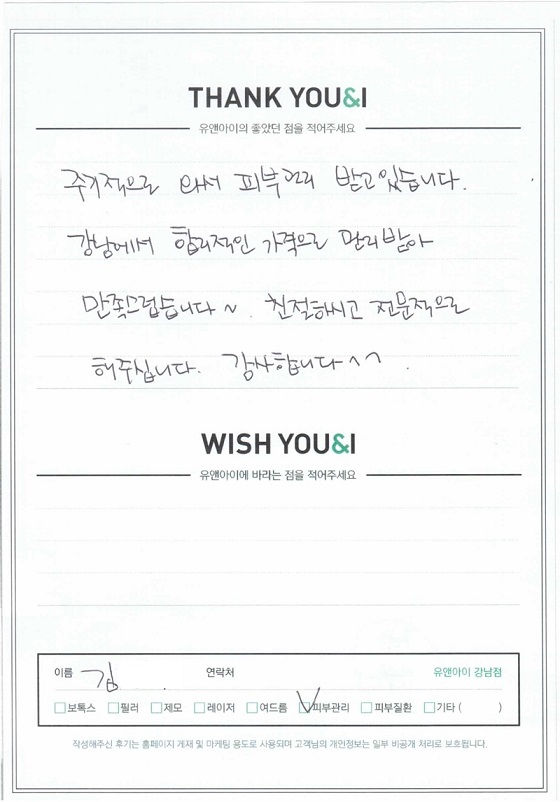 THANK YOU&I
유앤아이의 좋았던 점을 적어주세요
주기적으로 와서 피부관리 받고 있습니다.
강남에서 합리적인 가격으로 관리받아
만족스럽습니다~. 친절하시고 전문적으로
해주십니다. 감사합니다^^.
WISH YOU&I
유앤아이에 바라는 점을 적어주세요
이름 김 연락처 유앤아이 강남점
보톡스 필러 제모 레이저 여드름 피부관리 피부질환 기타 ( )
작성해주신 후기는 홈페이지 게재 및 마케팅 용도로 사용되며 고객님의 개인정보는 일부 비공개 처리로 보호됩니다.